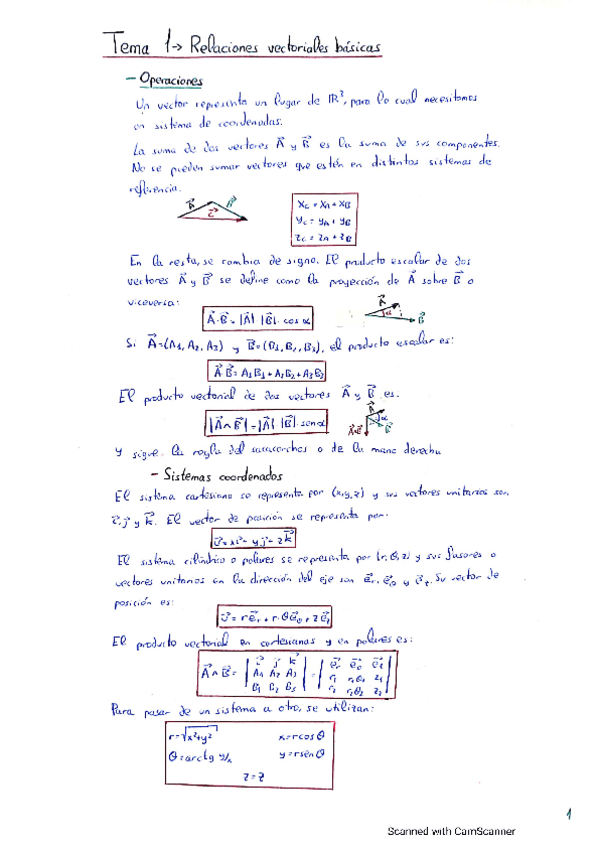 Tema 1 → Relaciones vectoriales básicas
- Operaciones
Un vector representa un lugar de ℝ³, para lo cual necesitamos
un sistema de coordenadas.
La suma de dos vectores A⃗ y B⃗ es la suma de sus componentes.
No se pueden sumar vectores que estén en distintos sistemas de
referencia.
A⃗ B⃗ C⃗
x_C = x_A + x_B
y_C = y_A + y_B
z_C = z_A + z_B
En la resta, se cambia de signo. El producto escalar de dos
vectores A⃗ y B⃗ se define como la proyección de A⃗ sobre B⃗ o
viceversa:
A⃗·B⃗ = |A⃗| |B⃗| · cos α
A⃗ α B⃗
Si A⃗=(A₁, A₂, A₃) y B⃗=(B₁, B₂, B₃), el producto escalar es:
A⃗ B⃗ = A₁B₁ + A₂B₂ + A₃B₃
El producto vectorial de dos vectores A⃗ y B⃗ es:
|A⃗∧B⃗| = |A⃗| |B⃗| · sen α
A⃗ α B⃗
y sigue la regla del sacacorchos o de la mano derecha
- Sistemas coordenados
El sistema cartesiano se representa por (x,y,z) y sus vectores unitarios son
i⃗, j⃗ y k⃗. El vector de posición se representa por:
v⃗ = xi⃗ + yj⃗ + zk⃗
El sistema cilíndrico o polares se representa por (r, θ, z) y sus fasores o
vectores unitarios en la dirección del eje son e⃗r, e⃗θ y e⃗z. Su vector de
posición es:
v⃗ = r e⃗r + r·θ e⃗θ + z e⃗z
El producto vectorial en cartesianas y en polares es:
A⃗∧B⃗ = | i⃗ j⃗ k⃗ | = | e⃗r e⃗θ e⃗z |
| A₁ A₂ A₃ | | r₁ r₁θ₁ z₁ |
| B₁ B₂ B₃ | | r₂ r₂θ₂ z₂ |
Para pasar de un sistema a otro, se utilizan:
r = √x²+y² x = r cos θ
θ = arctg y/x y = r sen θ
z = z
1
Scanned with CamScanner